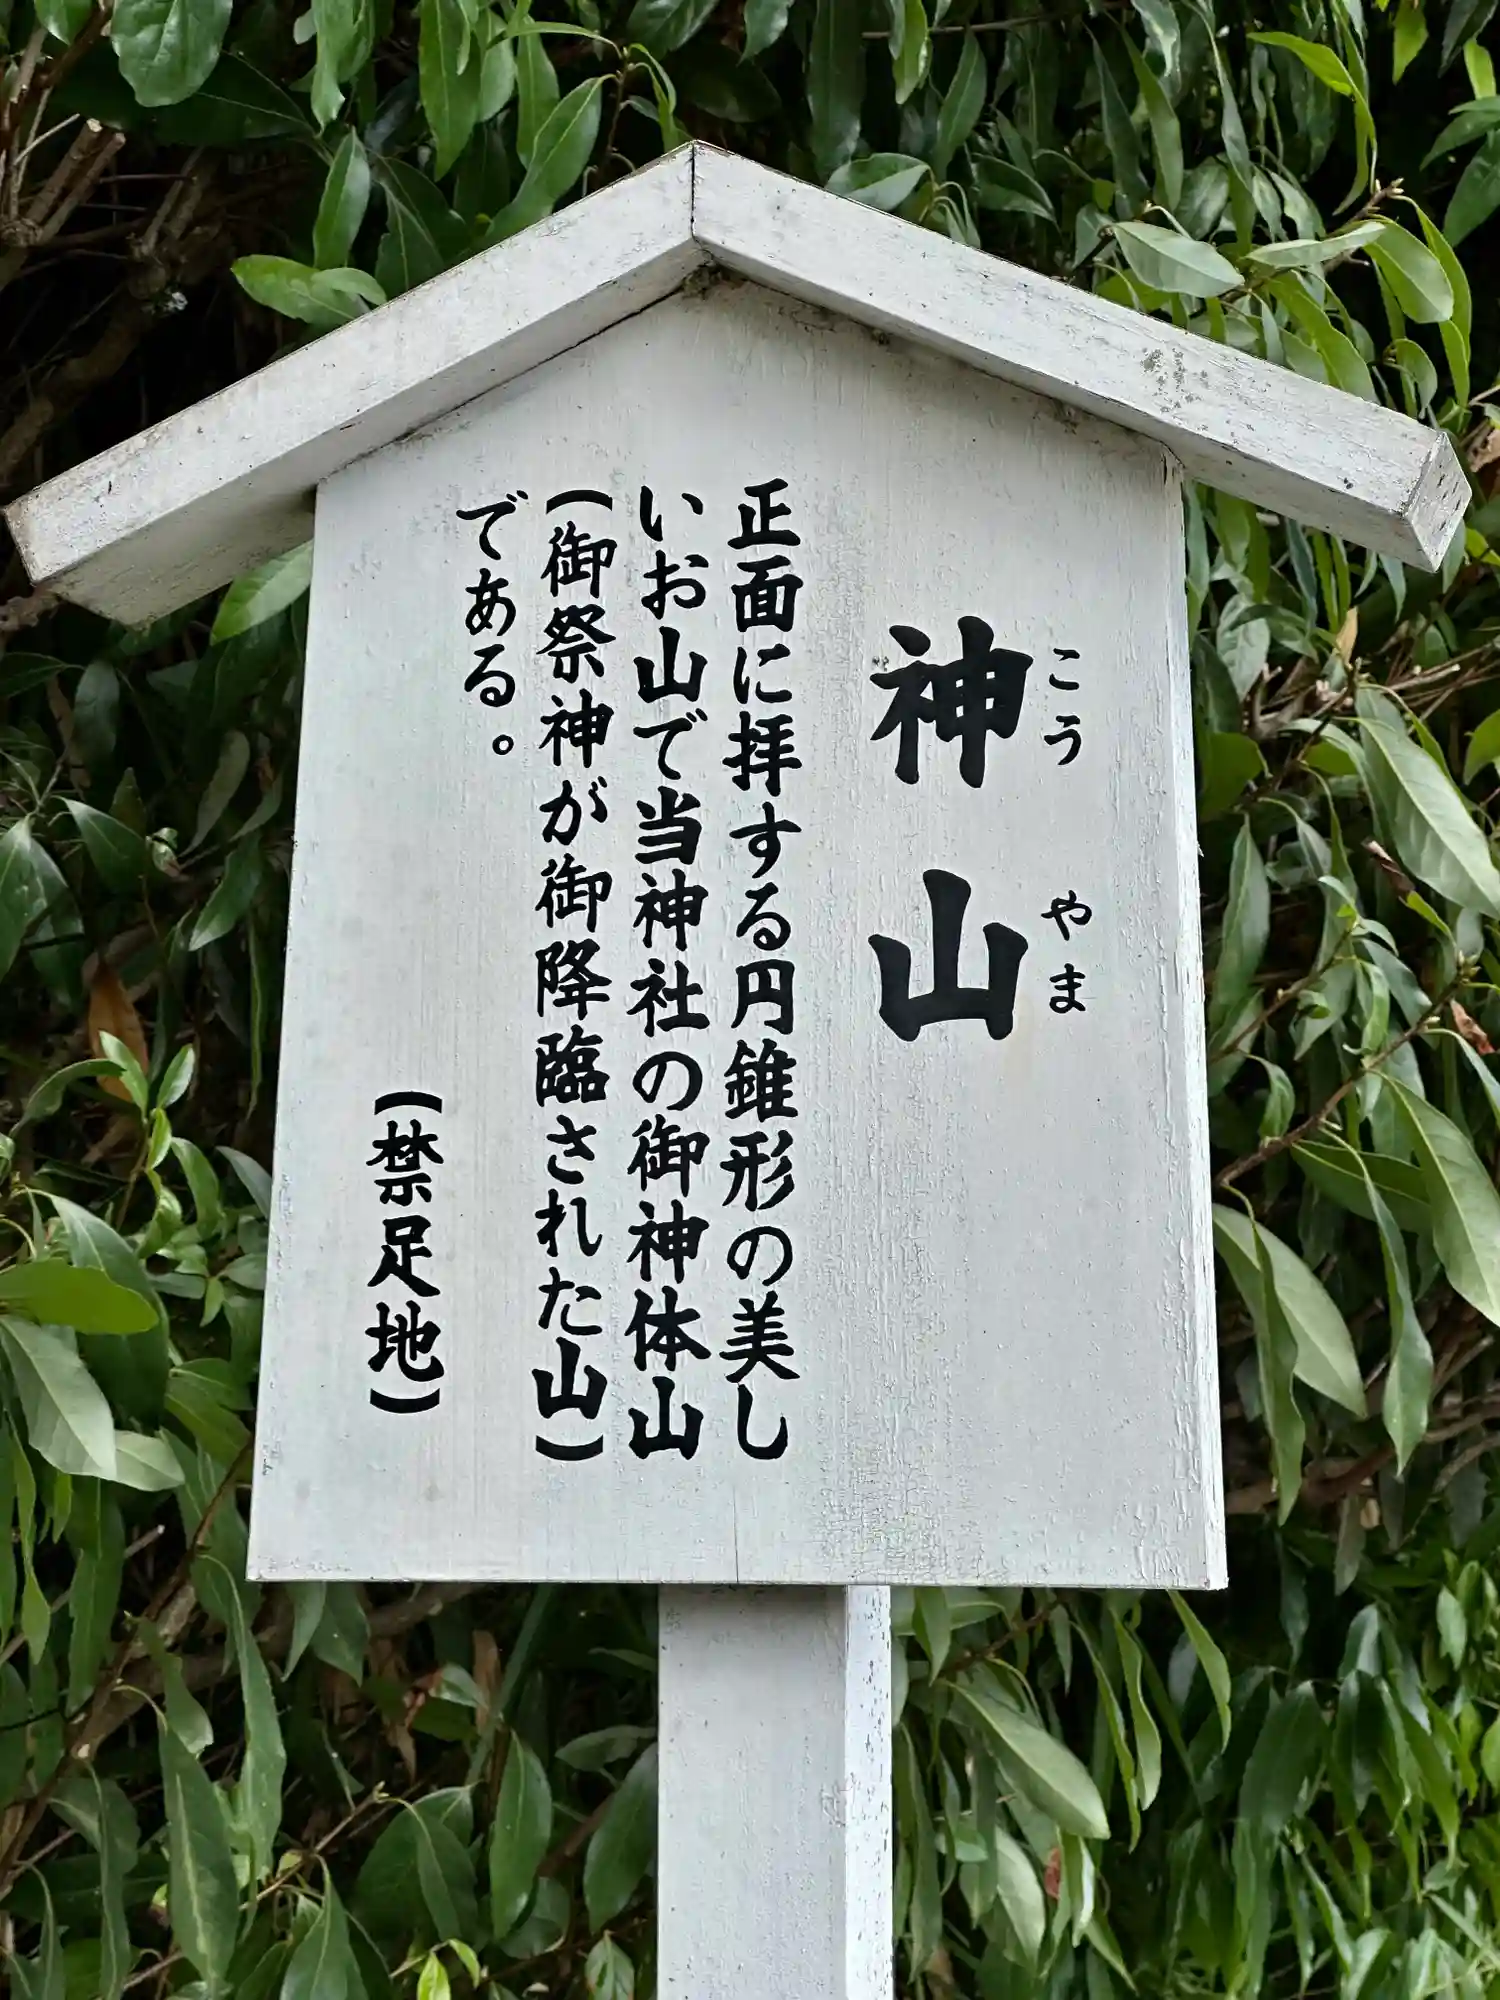 神山
こうやま
正面に拝する円錐形の美し
いお山で当神社の御神体山
(御祭神が御降臨された山)
である。
(禁足地)